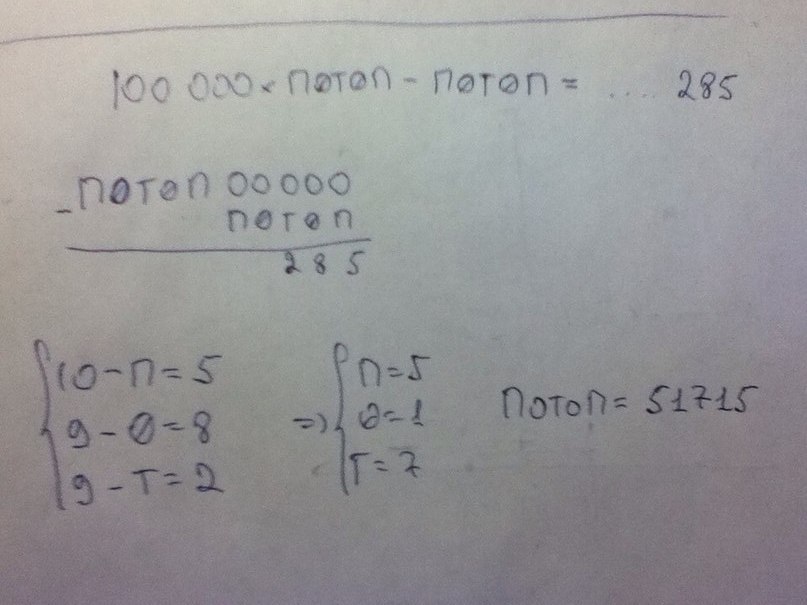 100 000 × ПОТОП - ПОТОП = .... 285
- ПОТОП 00000
ПОТОП
285
{ 10 - П = 5
9 - О = 8
9 - Т = 2
=> { П = 5
О = 1
Т = 7
ПОТОП = 51715